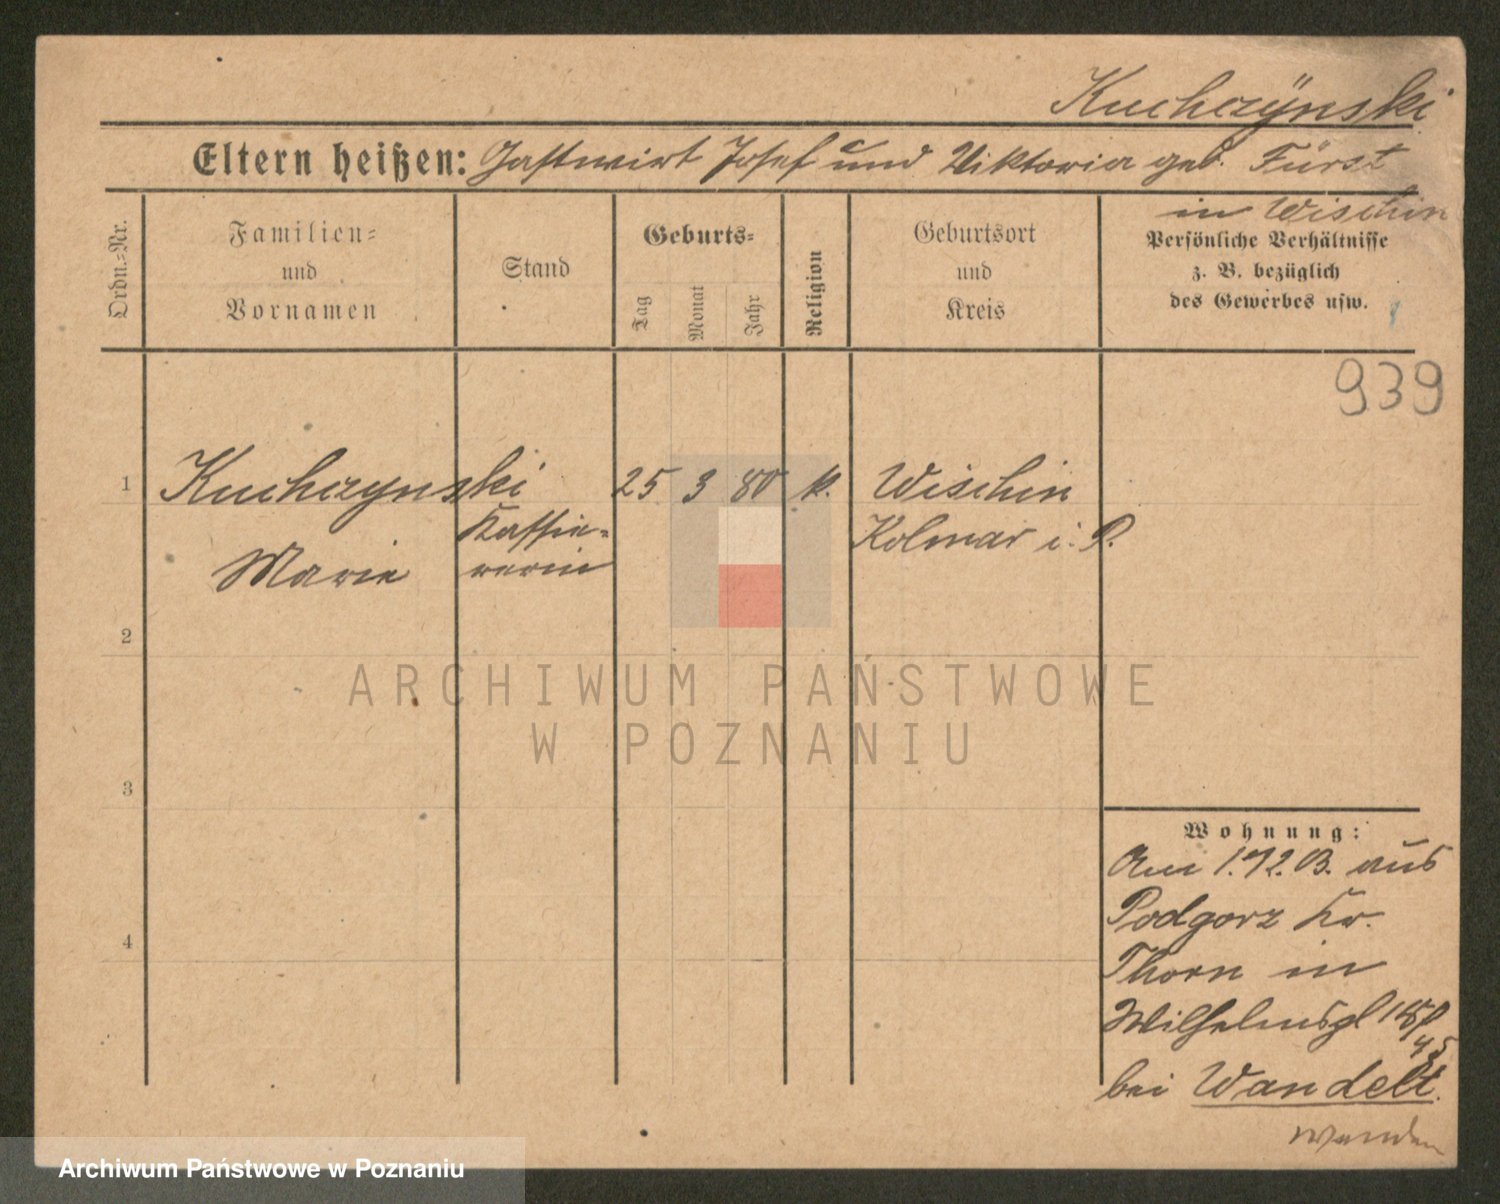 Kuchczÿnski
Eltern heißen: Gastwirt Josef und Viktoria geb. Fürst
in Wischin
Ordn.-Nr.
Familien-
und
Vornamen
Stand
Geburts-
Tag
Monat
Jahr
Religion
Geburtsort
und
Kreis
Persönliche Verhältnisse
z. B. bezüglich
des Gewerbes usw.
939
1 Kuchczynski 25 3 80 k. Wischin
Kassie-
Kolmar i. P.
Marie rerin
2
ARCHIWUM PAŃSTWOWE
W POZNANIU
3
Wohnung:
Am 1. 12. 13. aus
Podgorz Kr.
4
Thorn in
Wilhelmspl
bei Wandelt.
Archiwum Państwowe w Poznaniu